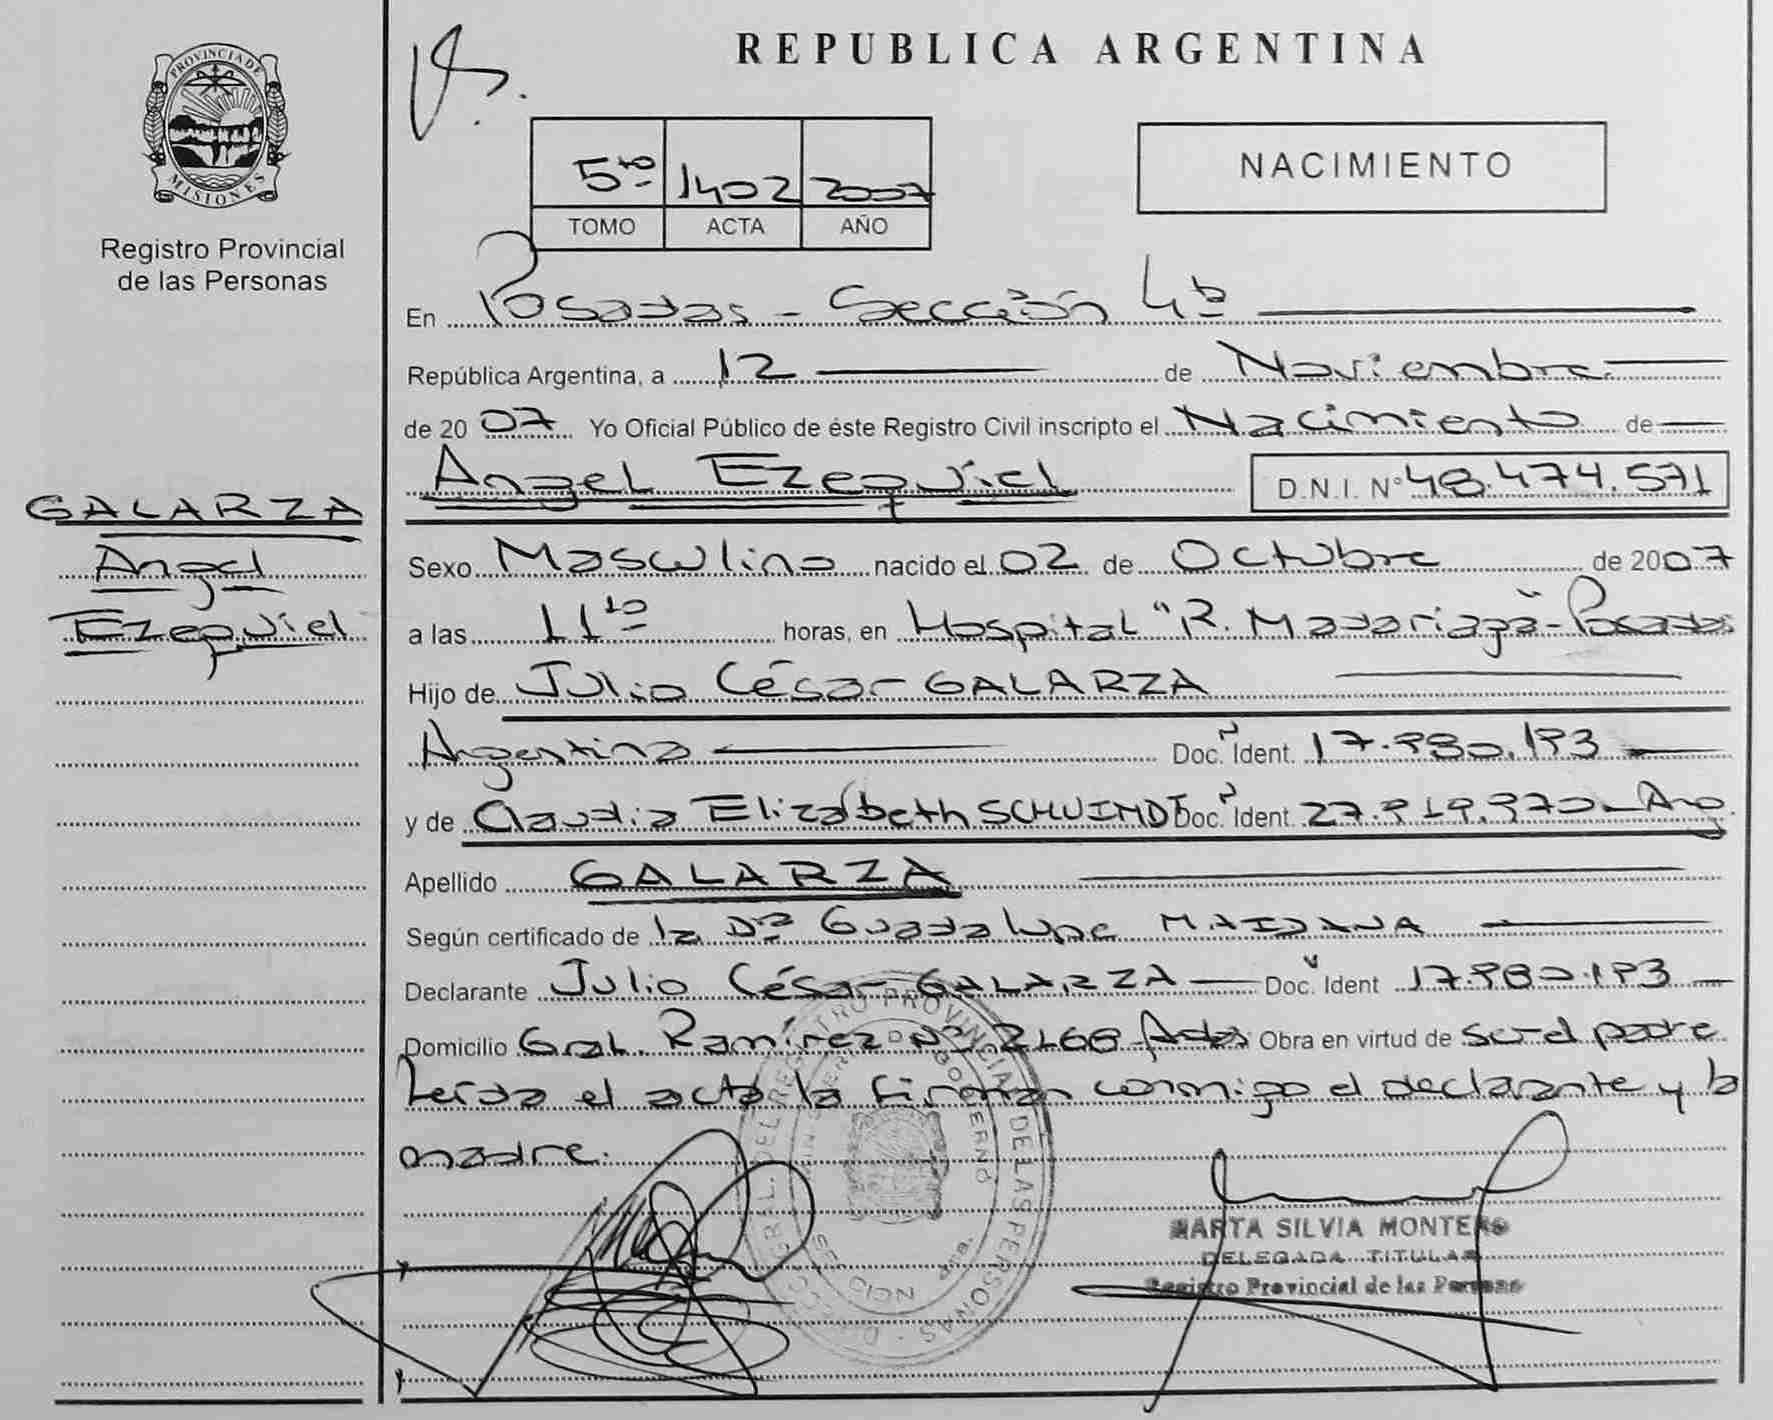 PROVINCIA DE
MISIONES
Registro Provincial
de las Personas
GALARZA
Angel
Ezequiel
REPUBLICA ARGENTINA
5to 1402 2007
TOMO ACTA AÑO
NACIMIENTO
En Posadas - Sección 4ta
República Argentina, a 12 de Noviembre
de 2007 Yo Oficial Público de éste Registro Civil inscripto el Nacimiento de
Angel Ezequiel D.N.I. Nº 48.474.571
Sexo Masculino nacido el 02 de Octubre de 2007
a las 11 10 horas, en Hospital "R. Madariaga" - Posadas
Hijo de Julio César GALARZA
Argentina Doc. Ident. 17.980.193
y de Claudia Elizabeth SCHUIMDT Doc. Ident. 27.919.970 - Arg.
Apellido GALARZA
Según certificado de la Dra Guadalupe MAIDANA
Declarante Julio César GALARZA Doc. Ident 17.980.193
Domicilio Gral. Ramírez Nº 2168 Pdas Obra en virtud de ser el padre
Leída el acta la firman conmigo el declarante y la
madre.
MARTA SILVIA MONTERO
DELEGADA TITULAR
Registro Provincial de las Personas